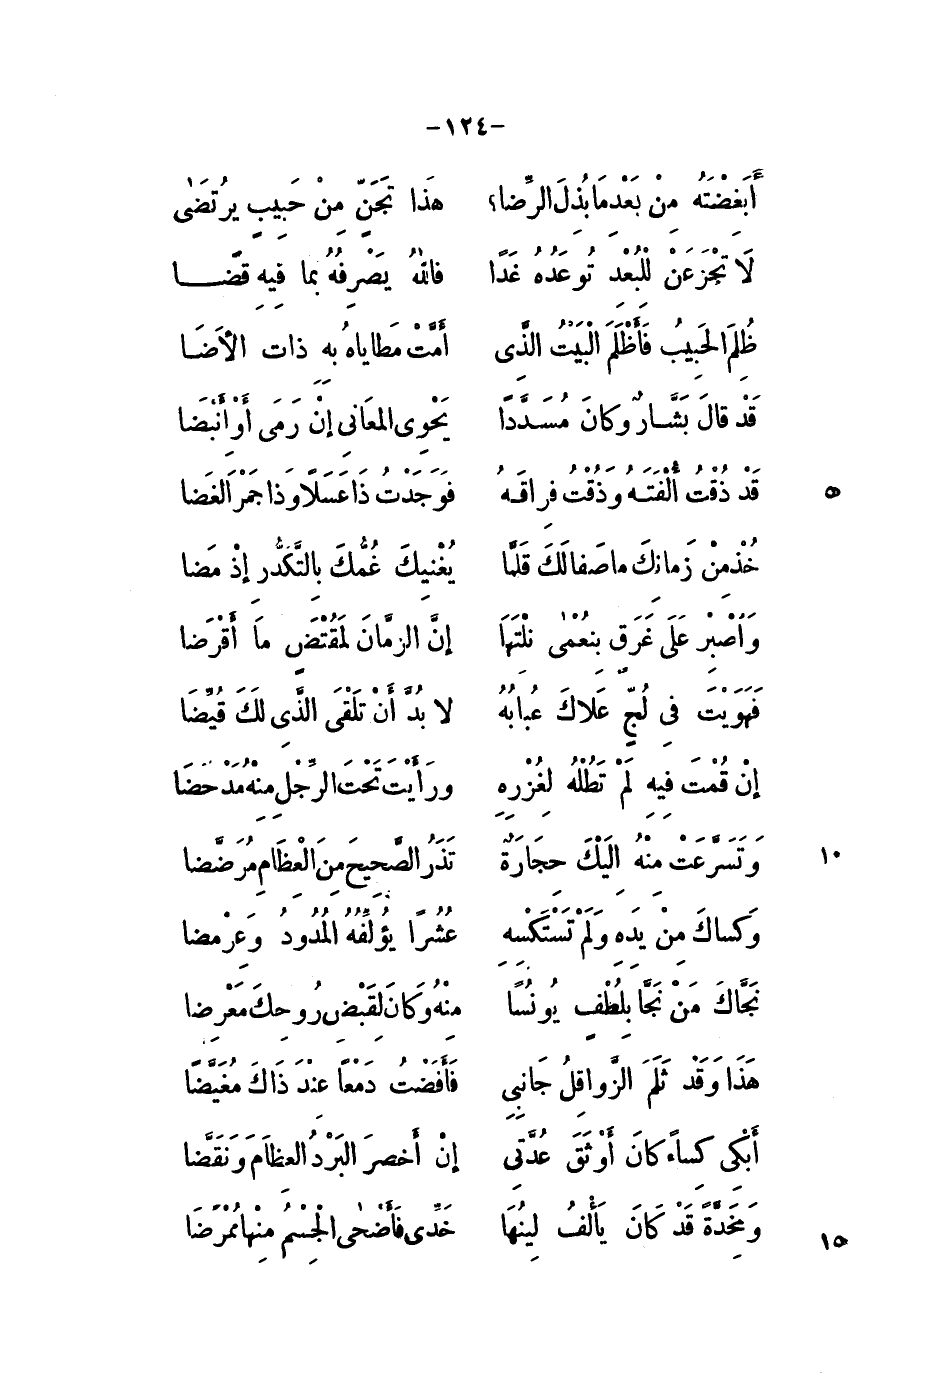 -١٢٤-
أَبغضْتَهُ مِنْ بَعْدِمَا بُذِلَ الرِّضا؟ هذَا تَجَنٍّ مِنْ حَبيبٍ يرتُضَىٰ
لَا تَجْزَعَنْ لِلْبُعْدِ تُوعَدُهُ غَدًا فاللهُ يَصْرِفُهُ بما فيهِ قَضَـــا
ظُلِمَ الحَبِيبُ فَأَظْلَمَ الْبَيْتُ الذَّى أَمَّتْ مَطاياهُ بِهِ ذات الأَضَا
قَدْ قالَ بَشَّـارٌ وكانَ مُسَـدَّدًا يَحْوِى المَعَانِى إنْ رَمَى أَوْ أَنْبَضَا
قَدْ ذُقْتُ أُلْفَتَـهُ وَذُقْتُ فِراقَـهُ فَوَجَدْتُ ذَا عَسَلاً وَذَا جَمْرَ الْغَضَا ٥
خُذْ مِنْ زَمانِكَ ماصَفا لَكَ قَلَّمَا يُغْنِيكَ غُمُّكَ بِالتَّكَدُّرِ إِذْ مَضَا
وَاُصْبِرْ عَلَى غَرَقٍ بِنعْمٰى نِلْتَهَا إنَّ الزمَّانَ لَمُقْتَضٍ مَا أَقْرَضا
فَهَوَيْتَ فى لُجٍّ عَلاكَ عُبابُهُ لا بُدَّ أَنْ تَلْقَى الذَّى لَكَ قُيِّضَا
إنْ قُمْتَ فيهِ لَمْ تَطُلْهُ لِغُزْرِهِ ورَأَيْتَ تَحْتَ الرِّجْلِ مِنْهُ مَدْحَضَا
وَتَسَرَّعَتْ مِنْهُ اِلَيْكَ حِجَارَةٌ تَذَرُ الصَّحِيحَ مِنَ الْعِظَامِ مُرَضَّضا ١٠
وَكساكَ مِنْ يَدِهِ وَلَمْ تَسْتَكْسِهِ عُشْرًا يُؤَلِّفُهُ المُدُودُ وَعِرْمضا
نَجَّاكَ مَنْ نَجَّا بِلُطْفٍ يُونُسًا مِنْهُ وَكَانَ لِقَبْضِ رُوحِكَ مَعْرِضا
هَذَا وَقَدْ ثَلَمَ الزَّواقِلُ جَانِبِي فَأَفَضْتُ دَمْعًا عِنْدَ ذَاكَ مُغَيَّضًا
أَبْكِى كِساءً كانَ أَوْثَقَ عُدَّتِى إنْ أَخصَرَ البَرْدُ العِظَامَ وَنَقَضَّا
وَمِخَدَّةً قَدْ كَانَ يَأْلَفُ لِينُهَا خَدِّى فَأَضْحٰى الْجِسْمُ مِنْها مُمْرَضَا ١٥